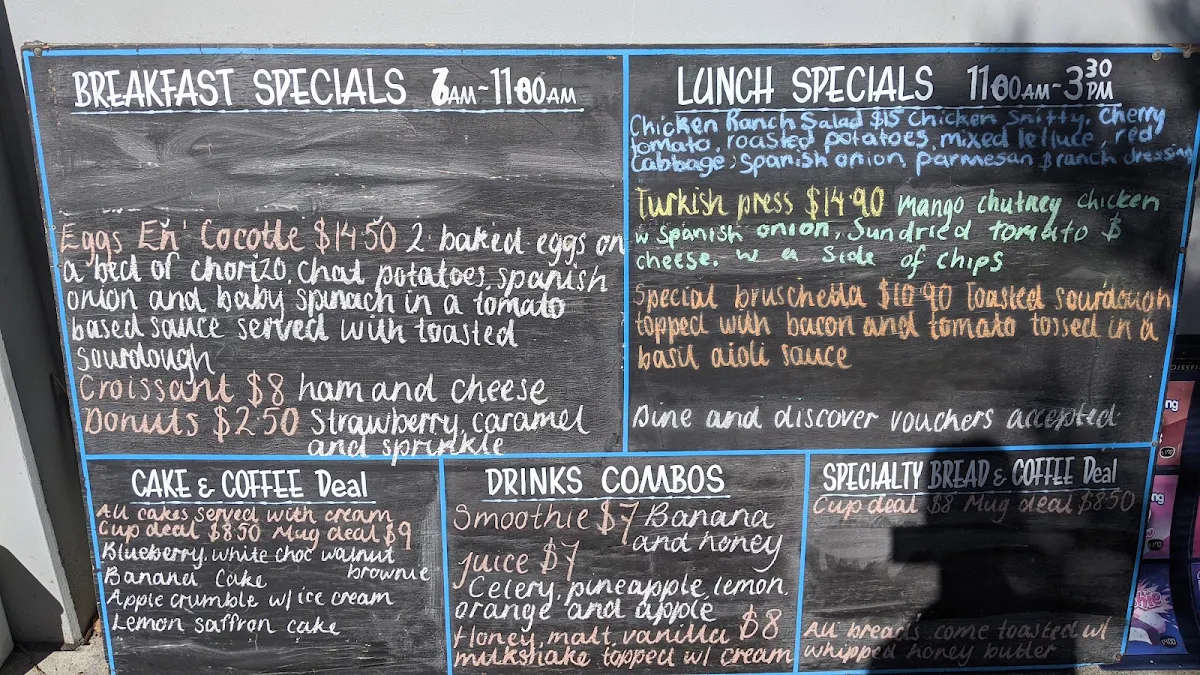 BREAKFAST SPECIALS 6AM-1100AM
Eggs En' Cocotte $14.50 2 baked eggs on
a bed of chorizo, chat potatoes, spanish
onion and baby spinach in a tomato
based sauce served with toasted
sourdough
Croissant $8 ham and cheese
Donuts $2.50 Strawberry, caramel
and sprinkle
LUNCH SPECIALS 1100AM-330PM
Chicken Ranch Salad $15 Chicken Snitty, Cherry
tomato, roasted potatoes, mixed lettuce, red
Cabbage, Spanish onion, parmesan, & ranch dressing
Turkish press $14.90 mango chutney chicken
w Spanish onion, Sundried tomato &
cheese. w a side of chips
Special bruschetta $10.90 Toasted sourdough
topped with bacon and tomato tossed in a
basil aioli sauce
Dine and discover vouchers accepted
CAKE & COFFEE Deal
All cakes served with cream
Cup deal $8.50 Mug deal $9
Blueberry, white choc walnut
brownie
Banana cake
Apple crumble w/ ice cream
Lemon saffron cake
DRINKS COMBOS
Smoothie $7 Banana
and honey
Juice $7
Celery, pineapple, lemon,
orange and apple
Honey, malt, vanilla $8
milkshake topped w/ cream
SPECIALTY BREAD & COFFEE Deal
Cup deal $8 Mug deal $8.50
All breads come toasted w/
whipped honey butter